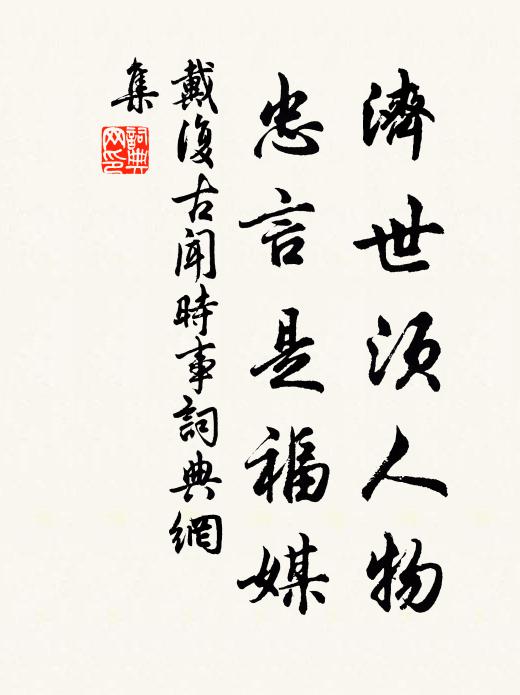 濟世須人物
忠言是福媒
戴復古聞時事詞典網
集
詞典
网印